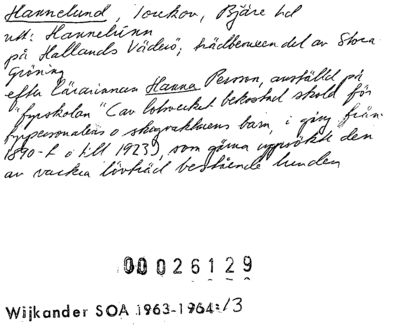 Hannelund, Torekov, Bjäre hd
utt: Hannelunn
på Hallands Väderö; trädbevuxen del av Stora
Gröning
efter lärarinnan Hanna Persson, anställd på
"fyrskolan" (av lotsverket bekostad skola för
fyrpersonalens o skogvaktarens barn, i gång från
1890-t o till 1923), som gärna uppsökte den
av vackra lövträd bestående lunden
00026129
Wijkander SOA 1963-1964:/3